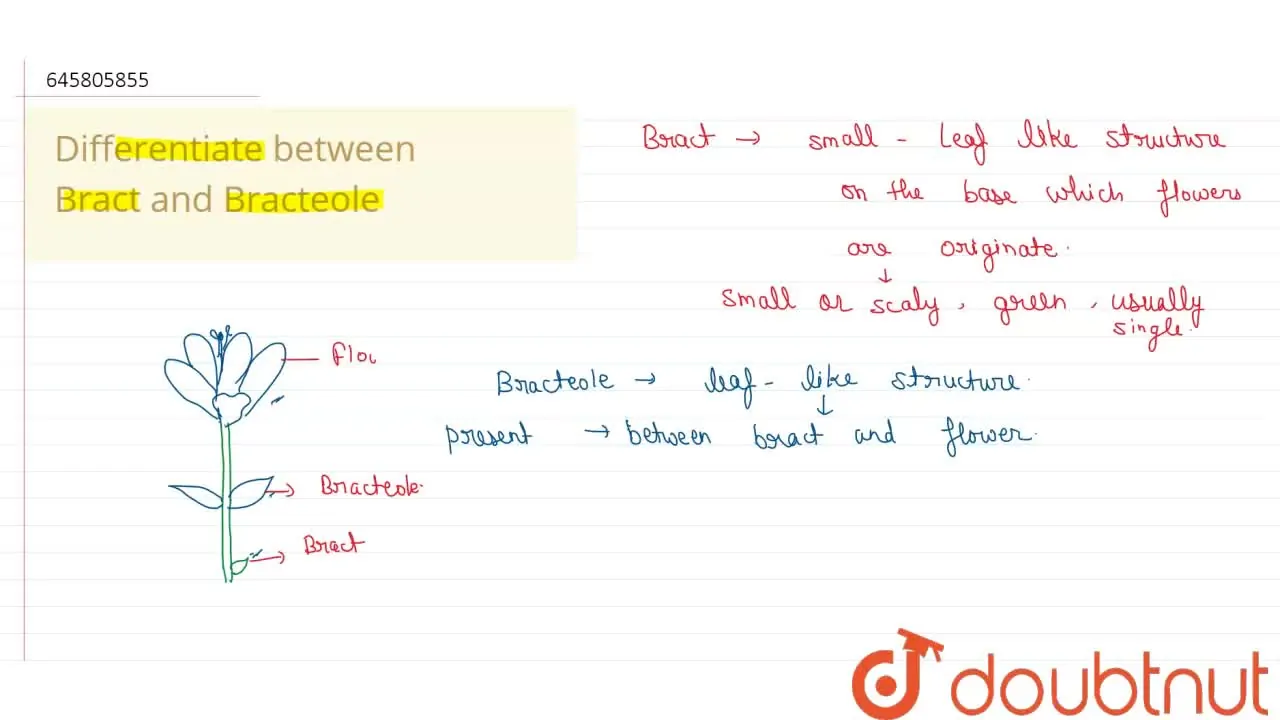 645805855
Differentiate between
Bract and Bracteole
Bract → small - leaf like structure
on the base which flowers
are originate.
↓
small or scaly, green, usually
single.
Flo
Bracteole → leaf - like structure.
↓
present → between bract and flower.
Bracteole.
Bract
doubtnut